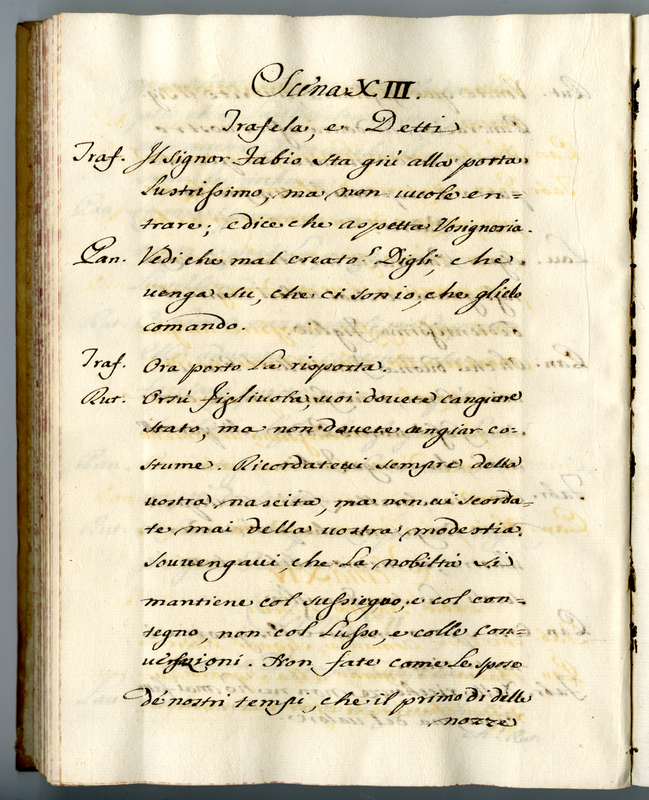 Scena XIII.
Trafela, e Detti
Traf. Il Signor Fabio sta giù alla porta
Lustrissimo, ma non vuole en=
trare; e dice che aspetta Vosignoria.
Pan. Vedi che mal creato! Digli, che
venga su, che ci son io, che glielo
comando.
Traf. Ora porto la risposta.
Rut. Orsù figlivola, voi dovete cangiare
stato, ma non dovete cangiar co=
stume. Ricordatevi sempre della
vostra nascita, ma non vi scorda=
te mai della vostra modestia.
Souvengavi, che la nobiltà si
mantiene col sussiegno, e col con=
tegno, non col Lusso, e colle con=
versazioni. Non fate come le spose
de' nostri tempi, che il primo dì delle
nozze